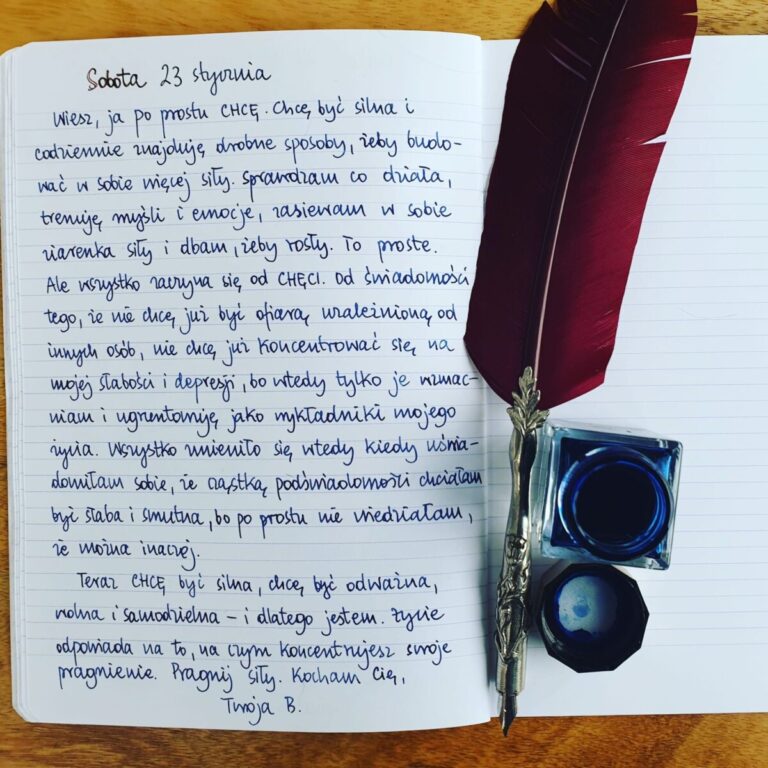 Sobota 23 stycznia
Wiesz, ja po prostu CHCĘ. Chcę być silna i
codziennie znajduję drobne sposoby, żeby budo-
wać w sobie więcej siły. Sprawdzam co działa,
trenuję myśli i emocje, zasiewam w sobie
ziarenka siły i dbam, żeby rosły. To proste.
Ale wszystko zaczyna się od CHĘCI. Od świadomości
tego, że nie chcę już być ofiarą uzależnioną od
innych osób, nie chcę już koncentrować się na
mojej słabości i depresji, bo wtedy tylko je wzmac-
niam i ugruntowuję jako wykładniki mojego
życia. Wszystko zmieniło się wtedy kiedy uświa-
domiłam sobie, że cząstką podświadomości chciałam
być słaba i smutna, bo po prostu nie wiedziałam,
że można inaczej.
Teraz CHCĘ być silna, chcę być odważna,
wolna i samodzielna – i dlatego jestem. Życie
odpowiada na to, na czym koncentrujesz swoje
pragnienie. Pragnij siły. Kocham Cię,
Twoja B.